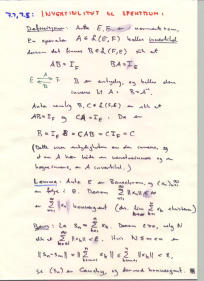 7.7, 7.8: INVERTIBILITET OG SPEKTRUM:
Definisjon: Anta E, F er normerte rom.
En operator A ∈ L(E,F) kalles invertibel
dersom det finnes B ∈ L(F,E) slik at
AB = I_F BA = I_E
E A F B er entydig, og kalles den
B inverse til A. B = A⁻¹.
Anta nemlig B, C ∈ L(F,E) er slik at
AB = I_F og CA = I_E. Da er
B = I_E B = CAB = C I_F = C
(Dette viser entydigheten av den inverse, og
at om A har både en venstreinvers og en
høyreinvers, er A invertibel.)
Lemma: Anta E er Banachrom, og (x_n)_{n=1}^∞
en følge i E. Dersom Σ_{n=1}^∞ ||x_n|| < ∞
er Σ_{n=1}^∞ x_n konvergent (dvs. lim Σ x_k eksisterer)
Bevis: La S_n = Σ_{k=1}^n x_k. Gitt ε > 0, velg N
slik at Σ_{k=N}^∞ ||x_k|| < ε. Hvis N ≤ m < n
||S_n - S_m|| = ||Σ_{k=m+1}^n x_k|| ≤ Σ_{k=m+1}^n ||x_k|| < ε,
så (S_n) er Cauchy, og dermed konvergent.